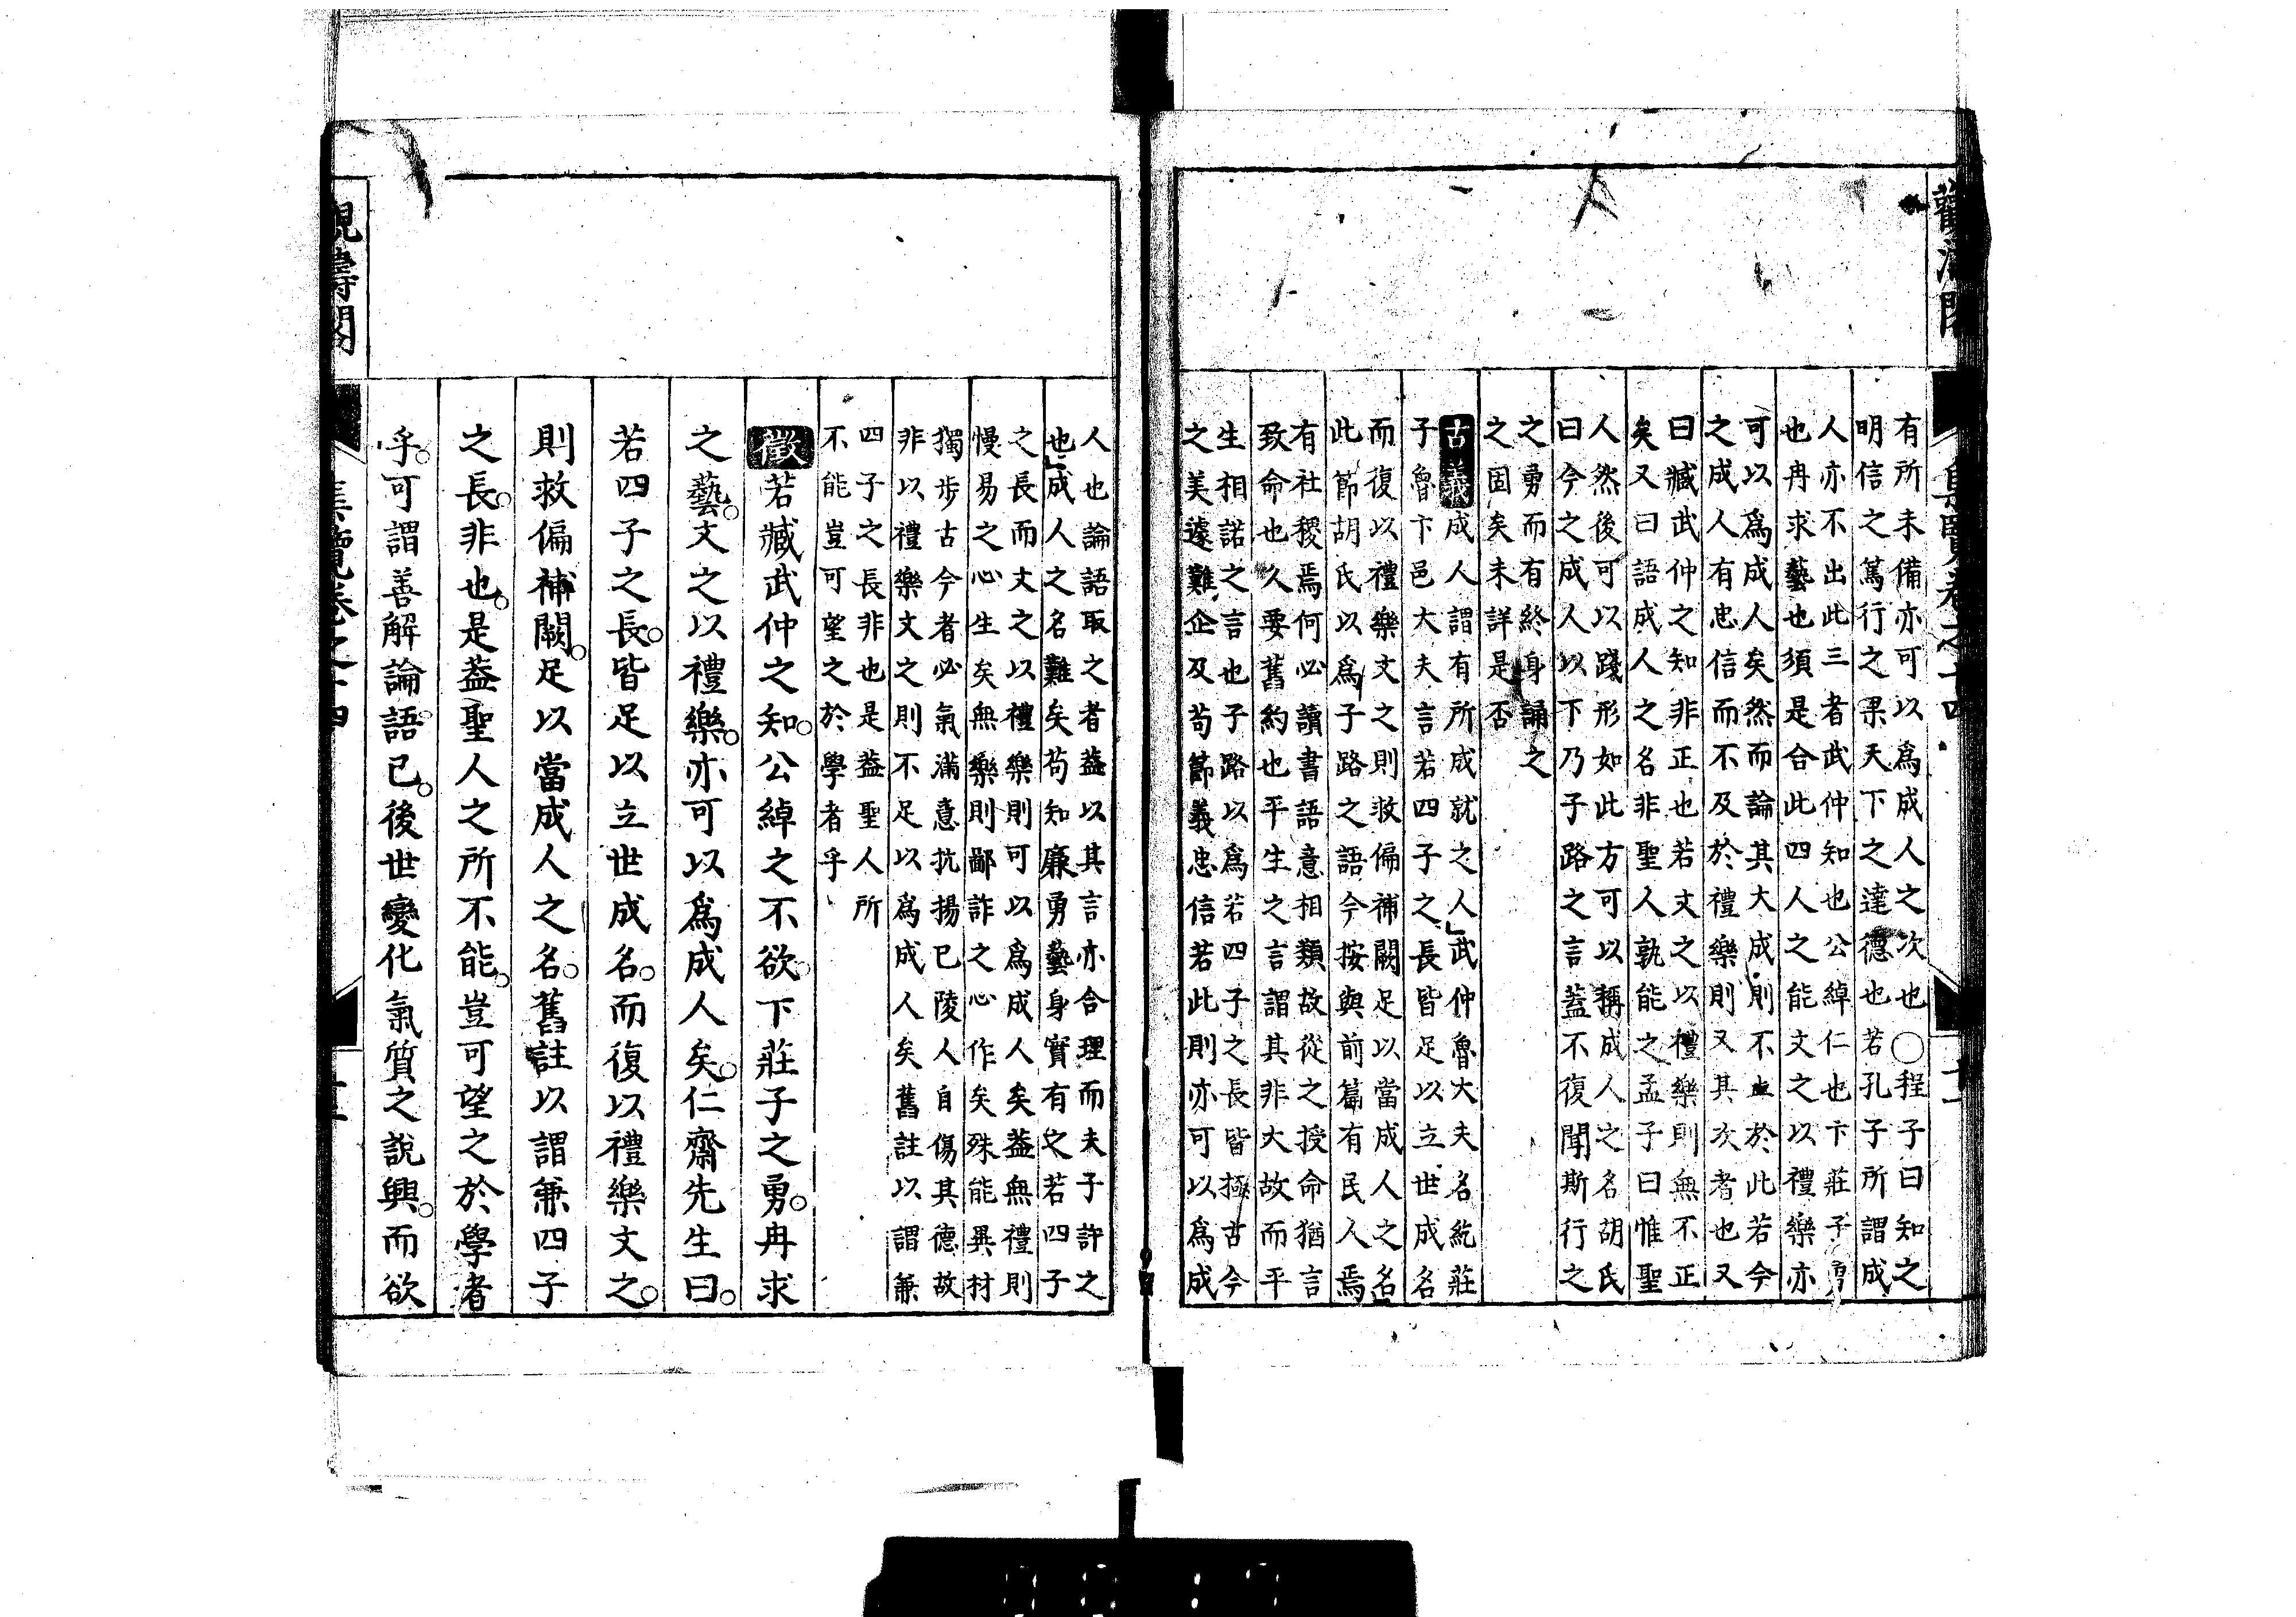 有所未備亦可以為成人之次也○程子曰知之
明信之篤行之果天下之達德也若孔子所謂成
人亦不出此三者武仲知也公綽仁也卞莊子勇
也冉求藝也須是合此四人之能文之以禮樂亦
可以為成人矣然而論其大成則不止於此若今
之成人有忠信而不及於禮樂則又其次者也又
曰臧武仲之知非正也若文之以禮樂則無不正
矣又曰語成人之名非聖人孰能之孟子曰惟聖
人然後可以踐形如此方可以稱成人之名胡氏
曰今之成人以下乃子路之言蓋不復聞斯行之
之勇而有終身誦之
之固矣未詳是否
古義成人謂有所成就之人武仲魯大夫名紇莊
子魯卞邑大夫言若四子之長皆足以立世成名
而復以禮樂文之則救偏補闕足以當成人之名
此節胡氏以為子路之語今按與前篇有民人焉
有社稷焉何必讀書語意相類故從之授命猶言
致命也久要舊約也平生之言謂其非大故而平
生相諾之言也子路以為若四子之長皆極古今
之美遽難企及苟節義忠信若此則亦可以為成
人也論語取之者蓋以其言亦合理而夫子許之
也成人之名難矣苟知廉勇藝身實有之若四子
之長而文之以禮樂則可以為成人矣蓋無禮則
慢易之心生矣無樂則鄙詐之心作矣殊能異材
獨步古今者必氣滿意抗揚己陵人自傷其德故
非以禮樂文之則不足以為成人矣舊註以謂兼
四子之長非也是蓋聖人所
不能豈可望之於學者乎
徵若臧武仲之知公綽之不欲下莊子之勇冉求
之藝文之以禮樂亦可以為成人矣仁齋先生曰
若四子之長皆足以立世成名而復以禮樂文之
則救偏補闕足以當成人之名舊註以謂兼四子
之長非也是蓋聖人之所不能豈可望之於學者
乎可謂善解論語已後世變化氣質之說興而欲
觀濤閣
集覽卷之十四